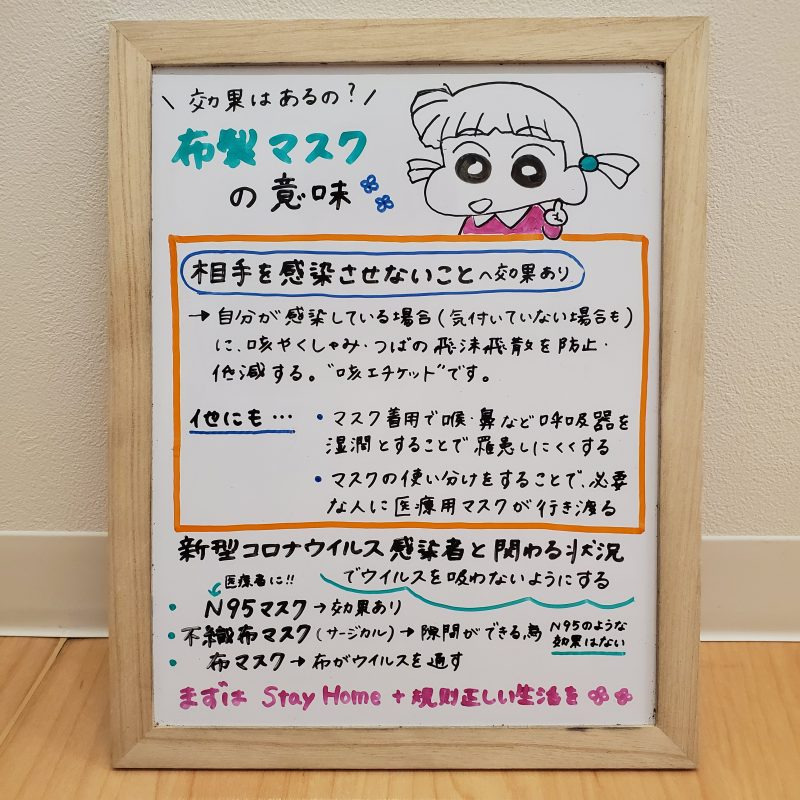 \ 効果はあるの？ /
布製マスク
の意味
相手を感染させないことへ効果あり
→ 自分が感染している場合(気付いていない場合も)
に、咳やくしゃみ・つばの飛沫飛散を防止・
低減する。"咳エチケット"です。
他にも…
• マスク着用で喉・鼻など呼吸器を
湿潤とすることで罹患しにくくする
• マスクの使い分けをすることで、必要
な人に医療用マスクが行き渡る
新型コロナウイルス感染者と関わる状況
でウイルスを吸わないようにする
医療者に!!
• N95マスク→効果あり
• 不織布マスク(サージカル)→隙間ができる為
N95のような
効果はない
• 布マスク→布がウイルスを通す
まずは Stay Home + 規則正しい生活を